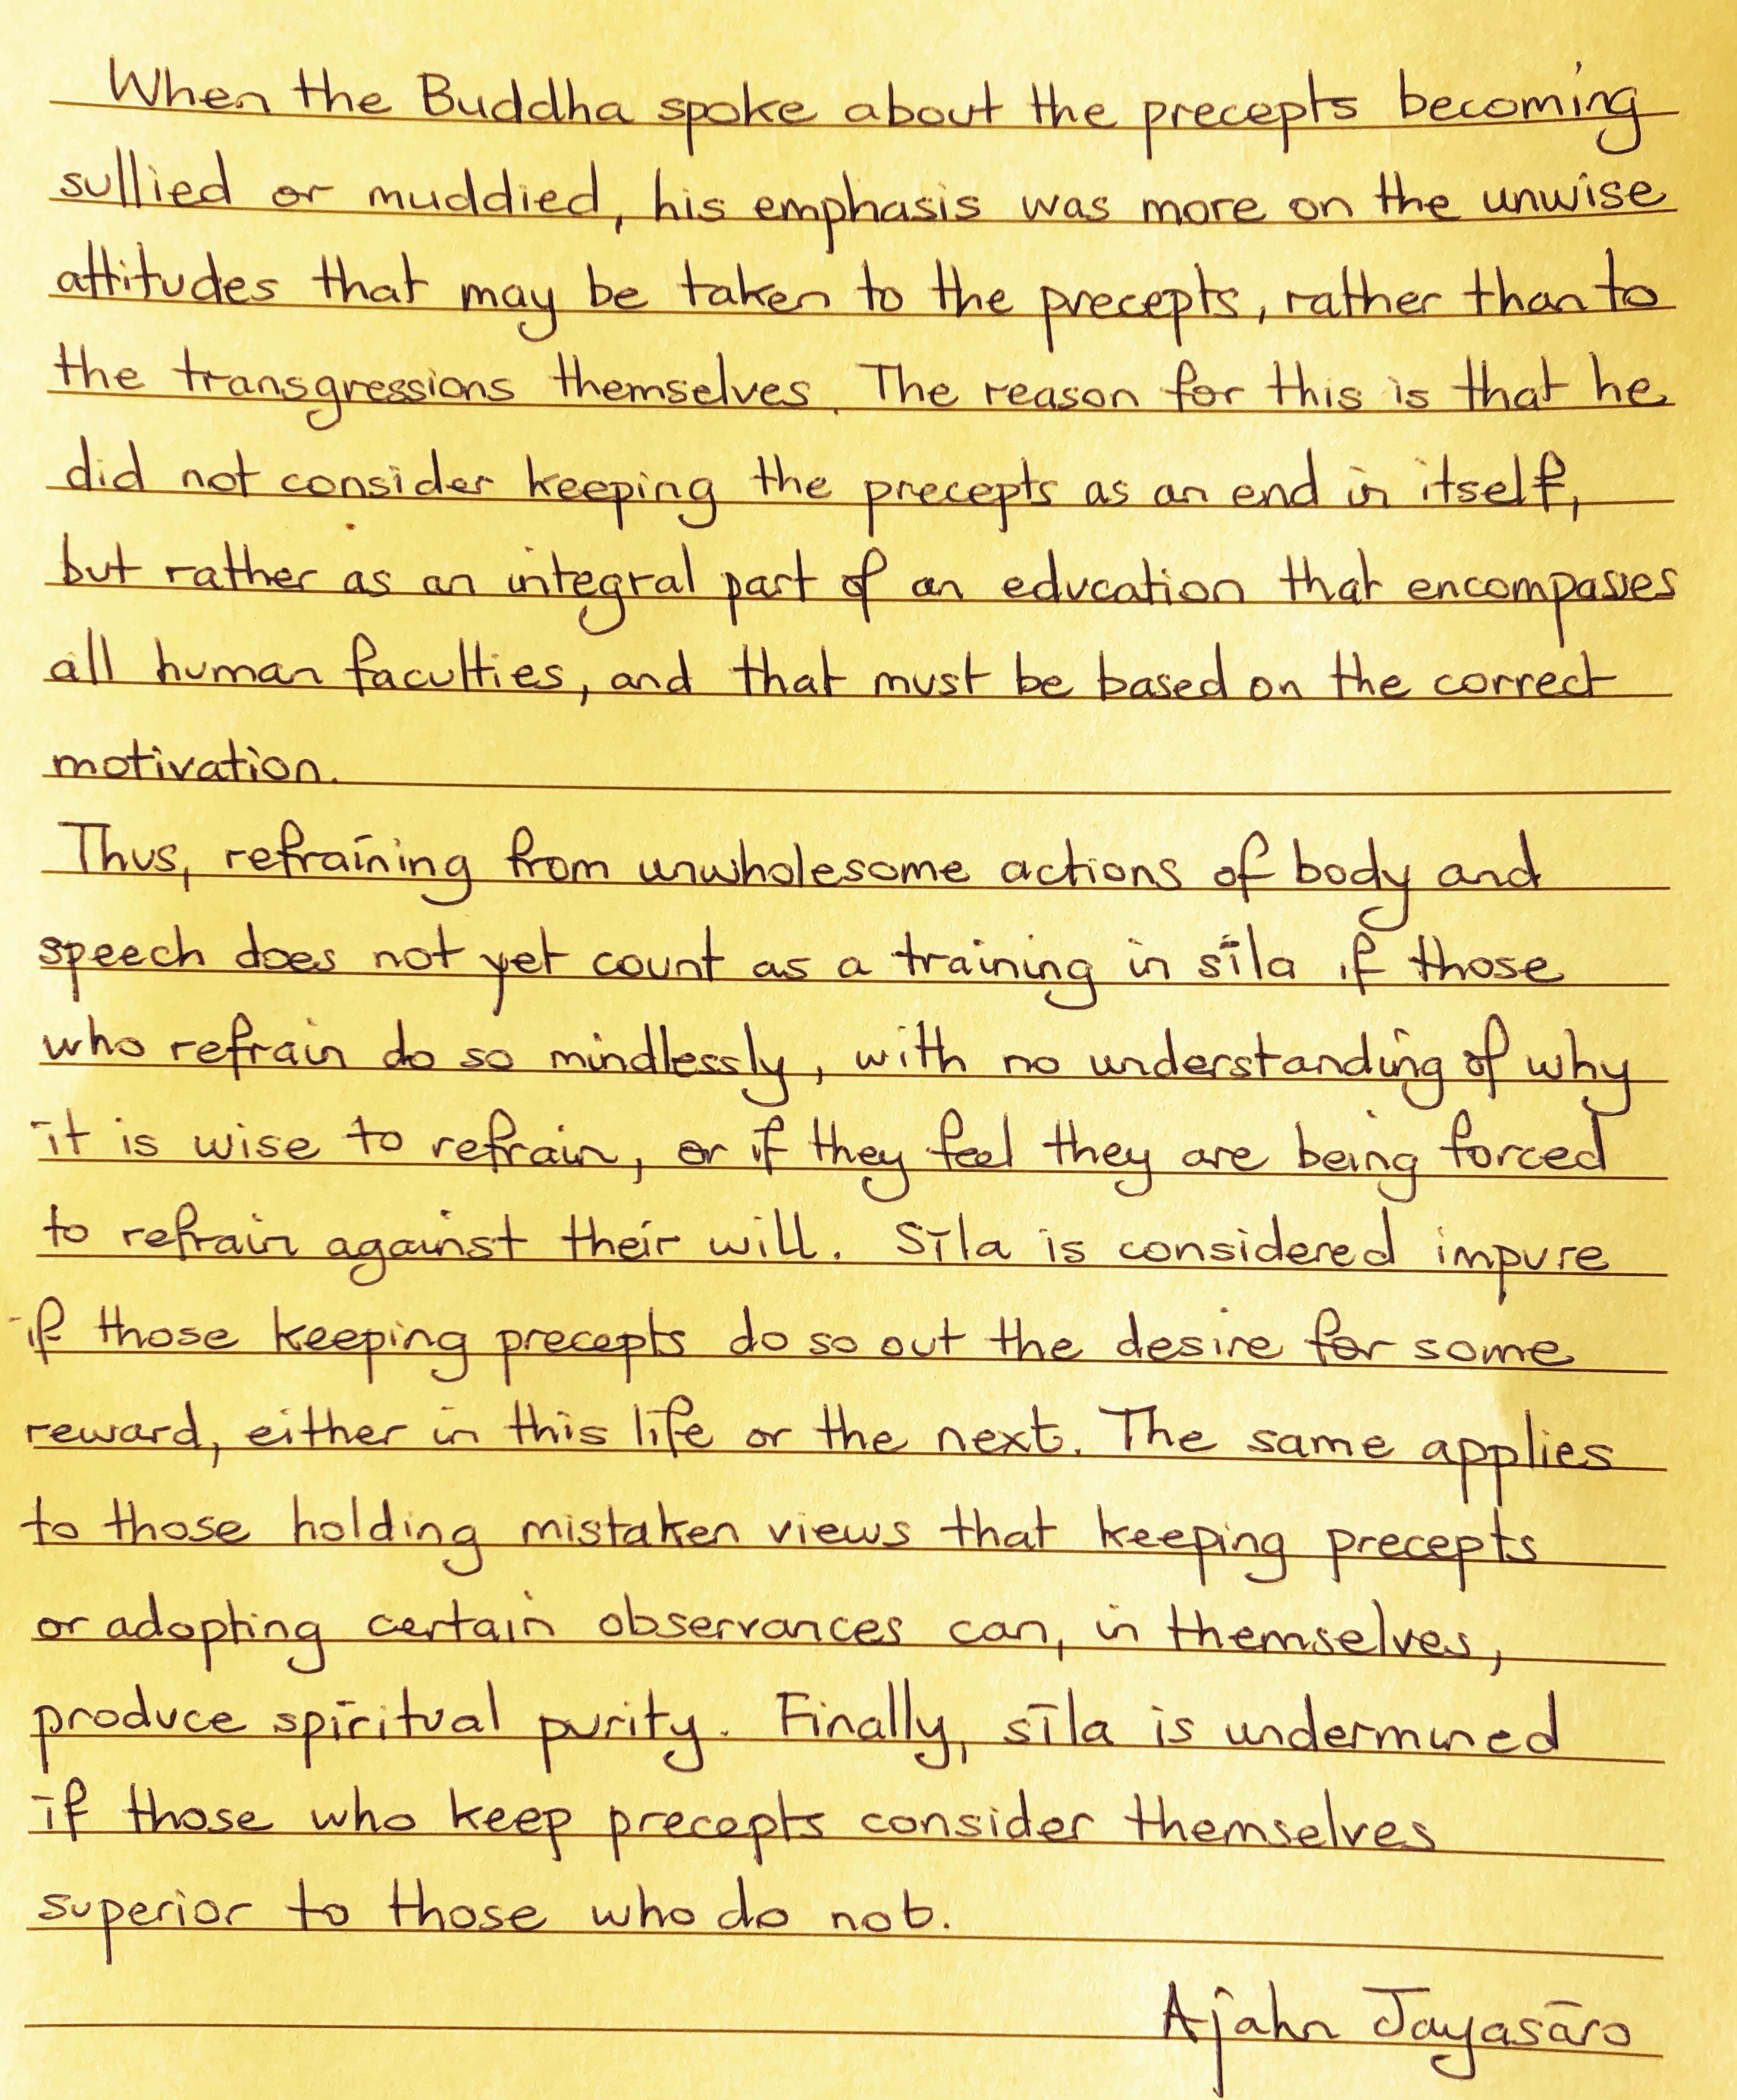 When the Buddha spoke about the precepts becoming
sullied or muddied, his emphasis was more on the unwise
attitudes that may be taken to the precepts, rather than to
the transgressions themselves. The reason for this is that he
did not consider keeping the precepts as an end in itself,
but rather as an integral part of an education that encompasses
all human faculties, and that must be based on the correct
motivation.
Thus, refraining from unwholesome actions of body and
speech does not yet count as a training in sīla if those
who refrain do so mindlessly, with no understanding of why
it is wise to refrain, or if they feel they are being forced
to refrain against their will. Sīla is considered impure
if those keeping precepts do so out the desire for some
reward, either in this life or the next. The same applies
to those holding mistaken views that keeping precepts
or adopting certain observances can, in themselves,
produce spiritual purity. Finally, sīla is undermined
if those who keep precepts consider themselves
superior to those who do not.
Ajahn Jayasāro